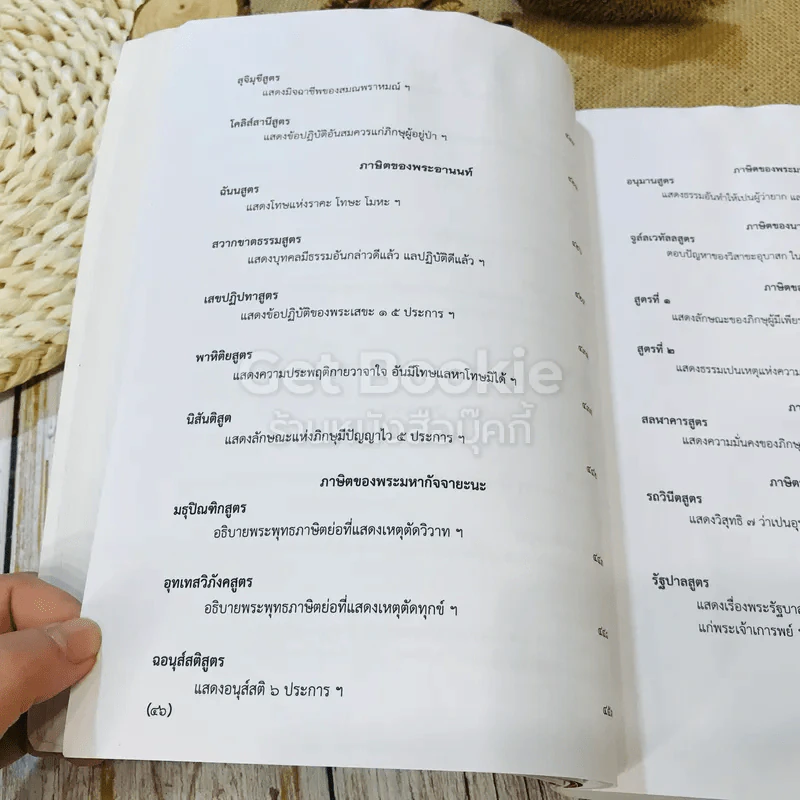 สุจิมุขีสูตร
แสดงมิจฉาชีพของสมณพราหมณ์ ฯ
โคลิส์สานีสูตร
แสดงข้อปฏิบัติอันสมควรแก่ภิกษุผู้อยู่ป่า ฯ
ภาษิตของพระอานนท์
ฉันนสูตร
แสดงโทษแห่งราคะ โทษะ โมหะ ฯ
สวากขาตธรรมสูตร
แสดงบุทคลมีธรรมอันกล่าวดีแล้ว แลปฏิบัติดีแล้ว ฯ
เสขปฏิปทาสูตร
แสดงข้อปฏิบัติของพระเสขะ ๑ ๕ ประการ ฯ
พาหิติยสูตร
แสดงความประพฤติกายวาจาใจ อันมีโทษแลหาโทษมิได้ ฯ
นิสันติสูต
แสดงลักษณะแห่งภิกษุมีปัญญาไว ๕ ประการ ฯ
ภาษิตของพระมหากัจจายะนะ
มธุปิณฑิกสูตร
อธิบายพระพุทธภาษิตย่อที่แสดงเหตุตัดวิวาท ฯ
อุทเทสวิภังคสูตร
อธิบายพระพุทธภาษิตย่อที่แสดงเหตุตัดทุกข์ ฯ
ฉอนุส์สติสูตร
แสดงอนุส์สติ ๖ ประการ ฯ
(๔๖)
ภาษิตของพระม
อนุมานสูตร
แสดงธรรมอันทำให้เปนผู้ว่ายาก แล
ภาษิตของนา
จูล์ลเวทัลลสูตร
ตอบปัญหาของวิสาขะอุบาสก ใน
ภาษิตขอ
สูตรที่ ๑
แสดงลักษณะของภิกษุผู้มีเพีย
สูตรที่ ๒
แสดงธรรมเปนเหตุแห่งความ
ภา
สลฬาคารสูตร
แสดงความมั่นคงของภิกษุ
ภาษิต
รถวินีตสูตร
แสดงวิสุทธิ ๗ ว่าเปนอุ
รัฐปาลสูตร
แสดงเรื่องพระรัฐบาล
แก่พระเจ้าเการพย์ ฯ
Get Bookie
ร้านหนังสือบุ๊คกี้